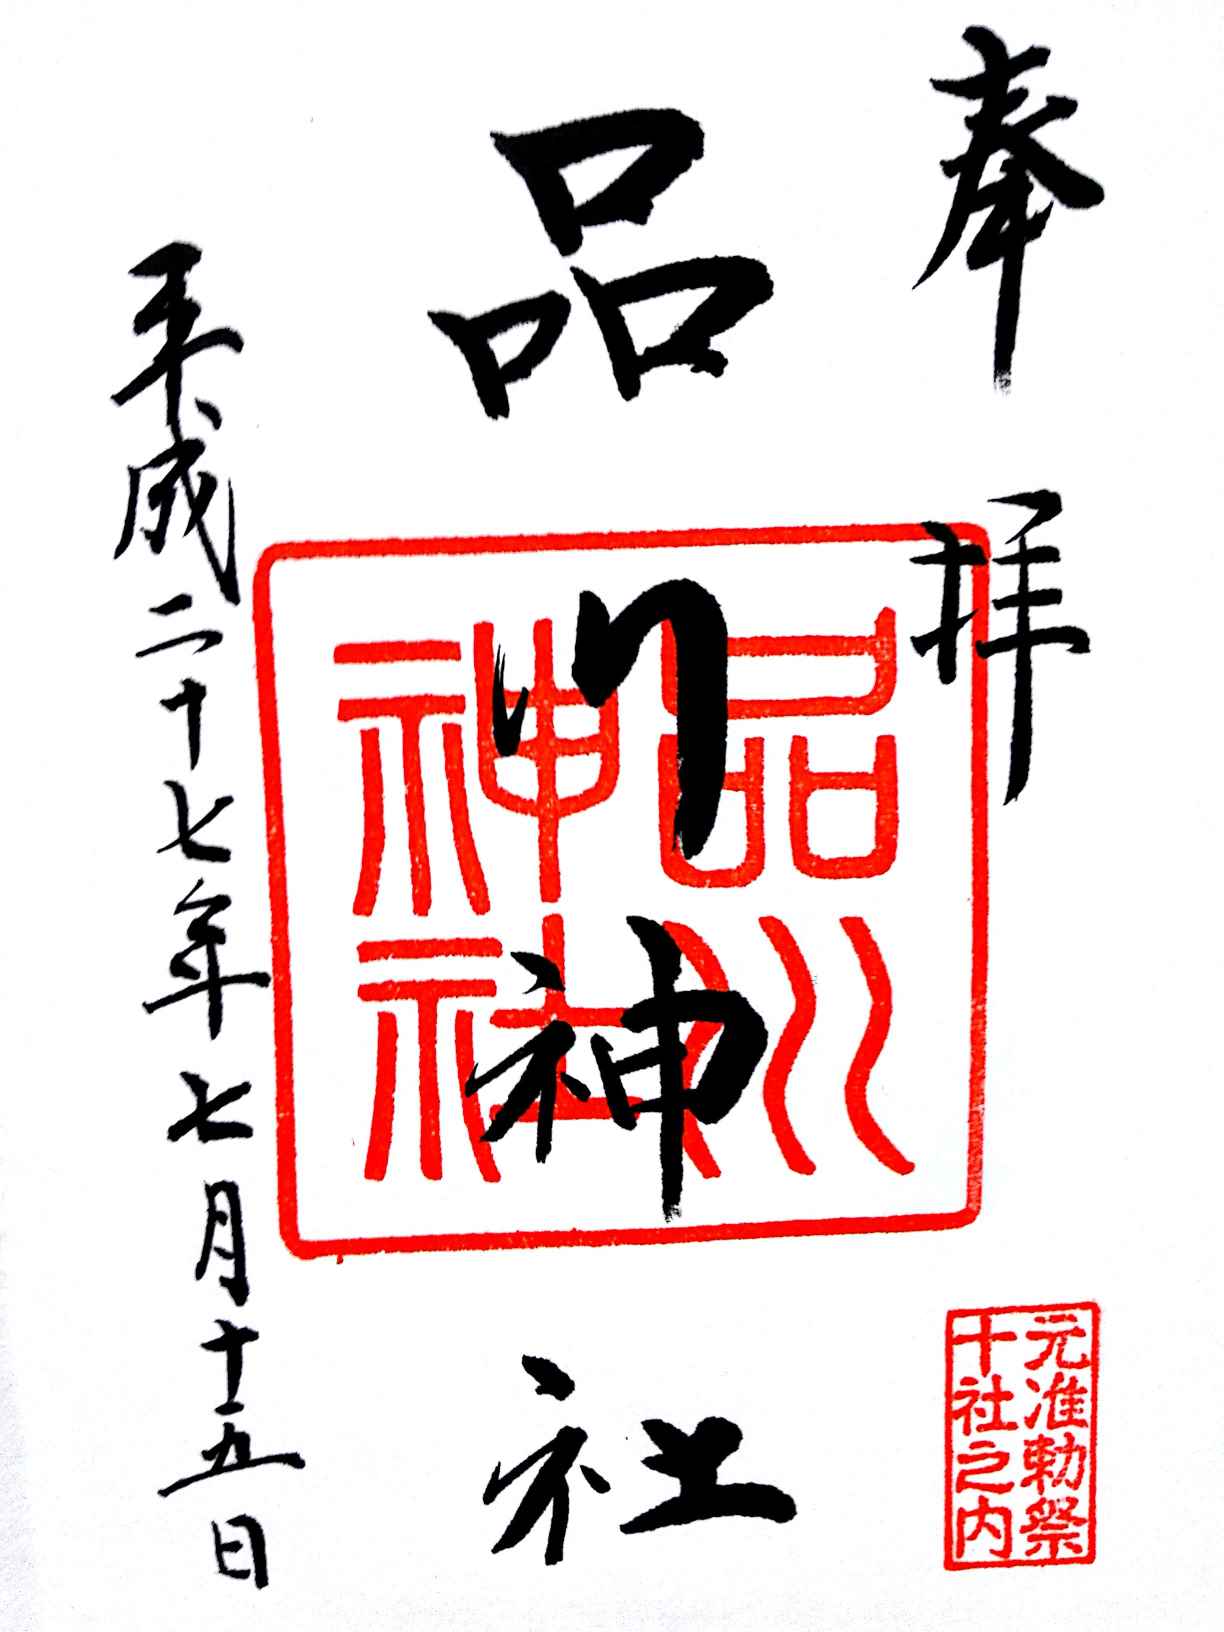 奉拝
品川神社
品川
神社
平成二十七年七月十五日
元准勅祭
十社之内